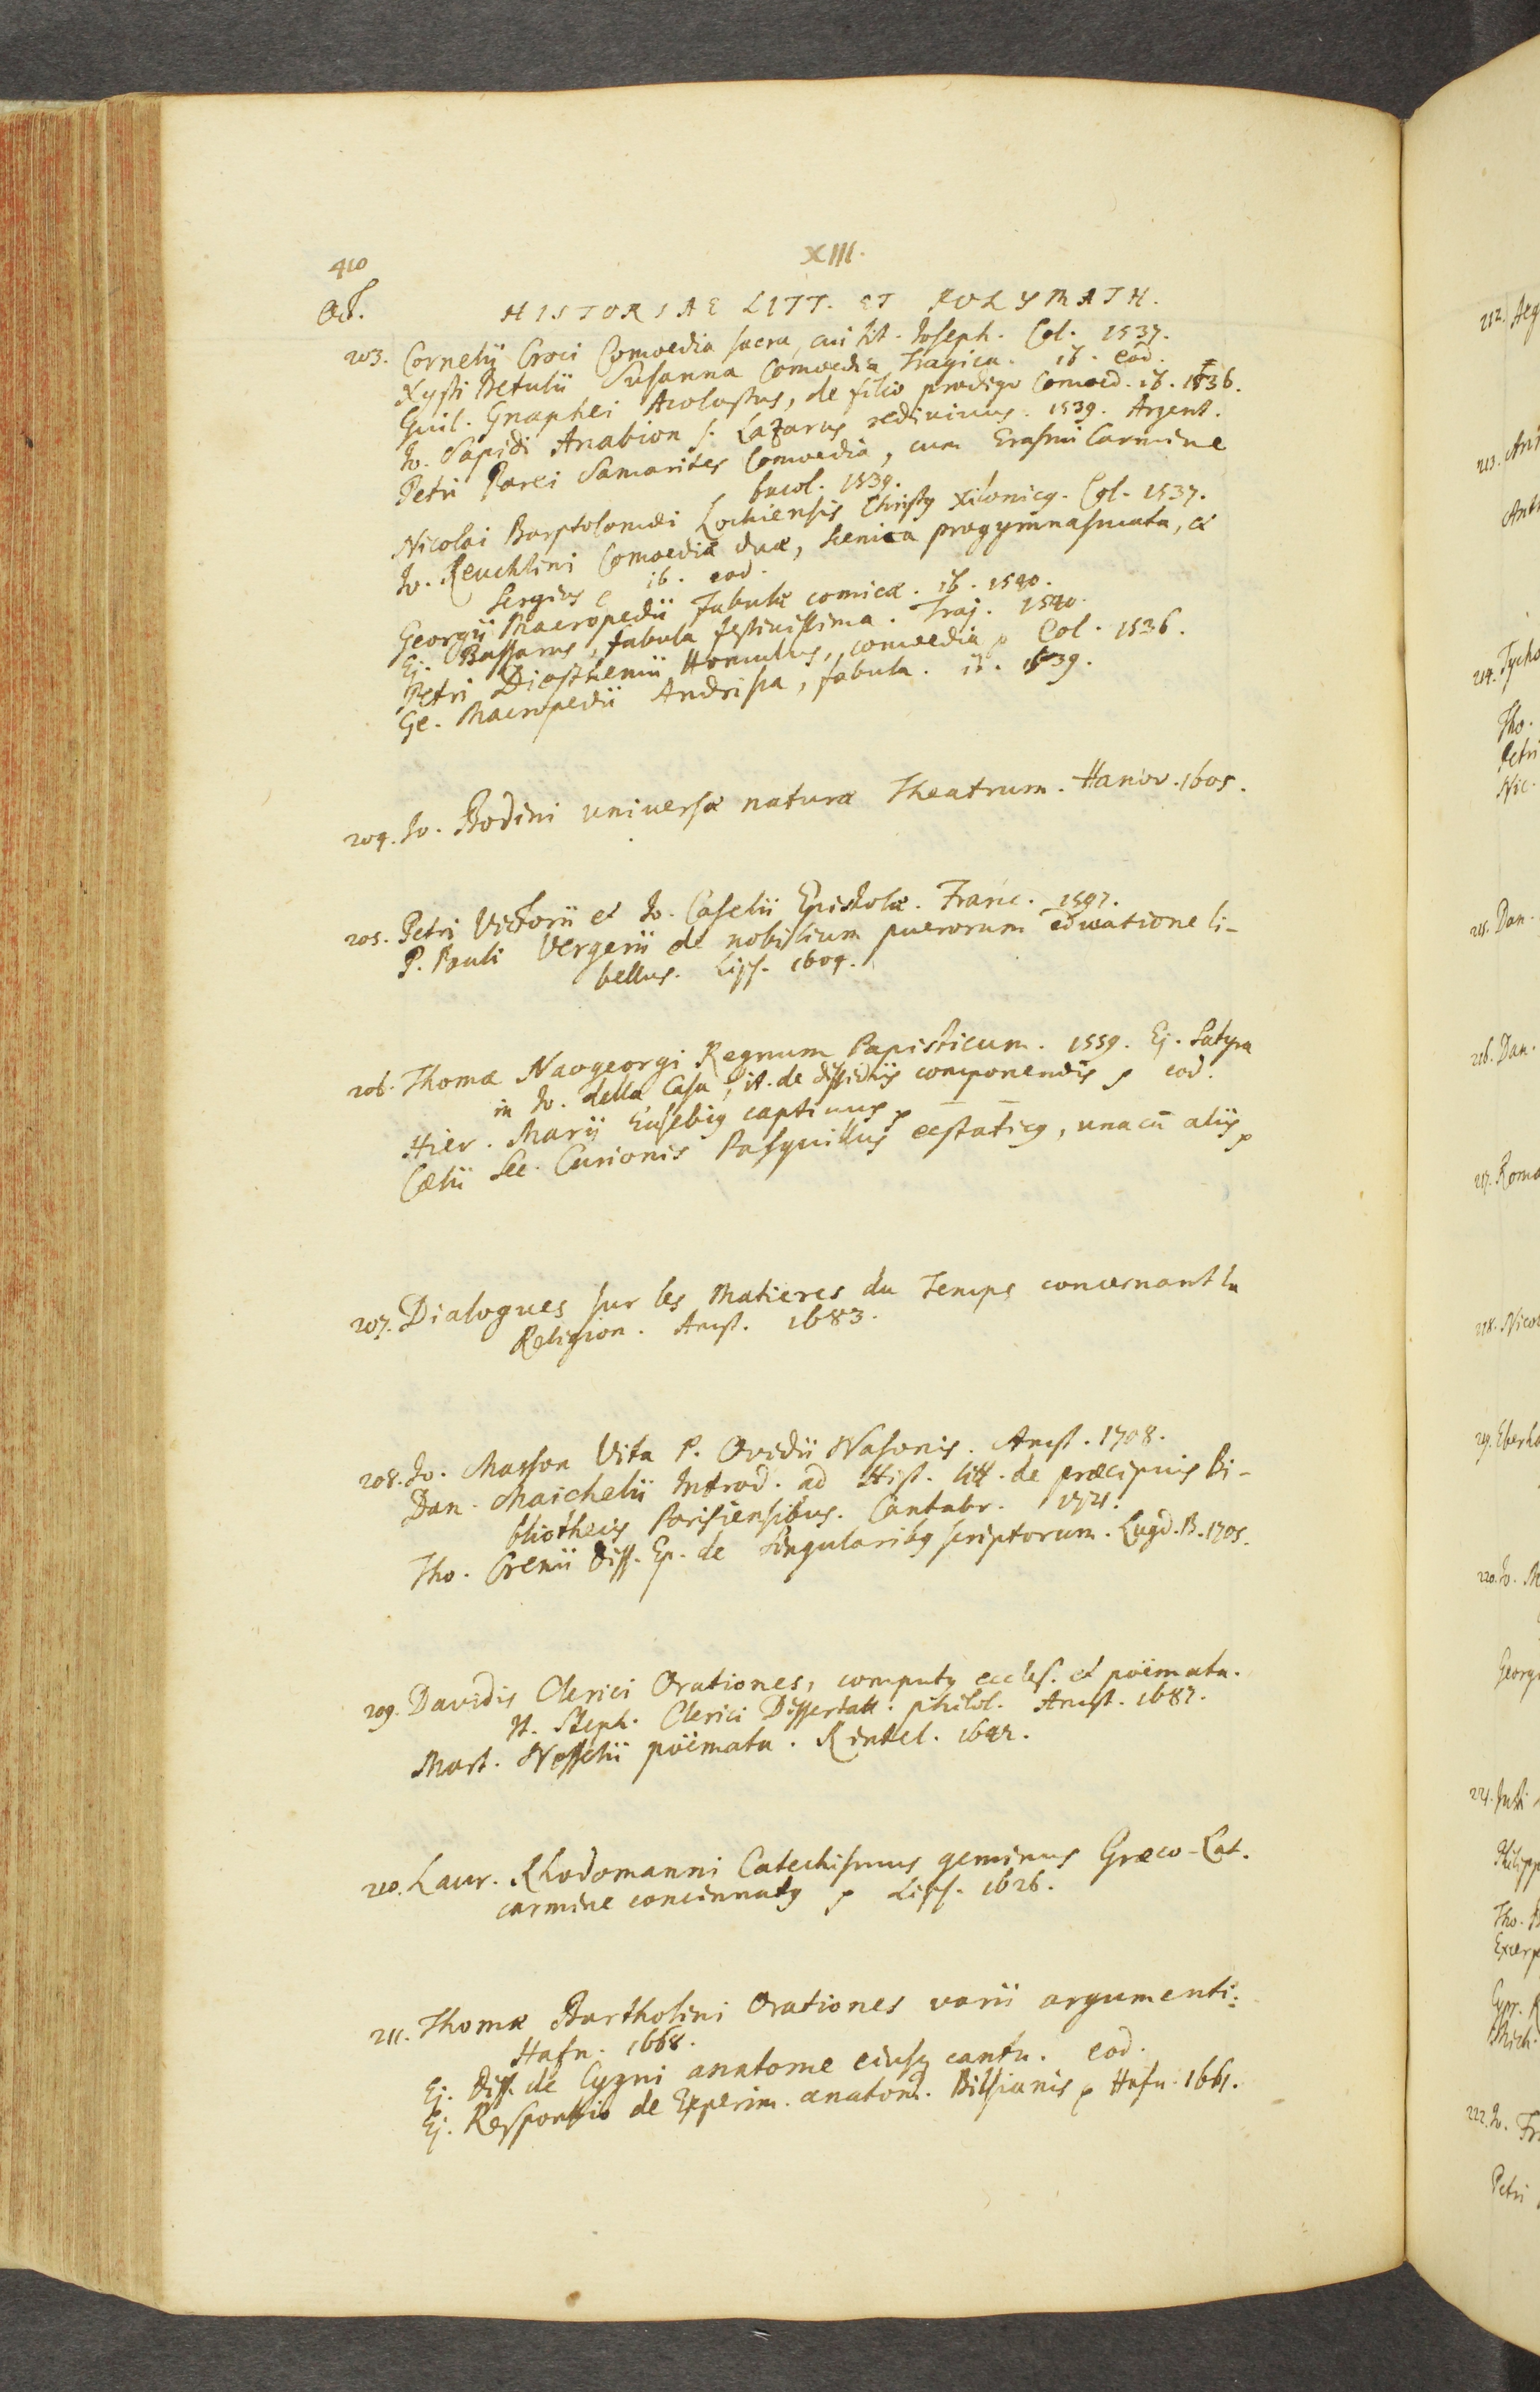 410
XIII.
Oct.
HISTORIAE LITT. ET POLYMATH.
203. Cornelii Croci Comoedia sacra, cui tit. Joseph. Col. 1537.
Xysti Betulii Susanna Comoedia Tragica. ib. eod.
Guil. Gnaphei Acolastus, de filio prodigo Comoed. ib. 1536.
Jo. Sapidi Anabion s. Lazarus redivivus. 1539. Argent.
Petri Parei Samarites Comoedia, cum Erasmi Carmine
bucol. 1539.
Nicolai Barptolomæi Lochiensis Christq Xilonicq. Col. 1537.
Jo. Reuchlini Comoediæ duæ, scenica progymnasmata, et
Sergius ib. eod.
Georgii Macropedii Fabulæ comicæ. ib. 1540.
Ej. Bassarus, fabula festivissima. Traj. 1540.
Petri Diesthemii Homulus, comoedia p Col. 1536.
Ge. Macropedii Andrisca, fabula. ib. 1539.
204. Jo. Bodini universæ naturæ Theatrum. Hanov. 1605.
205. Petri Victorii et Jo. Caselii Epistolæ. Franc. 1597.
P. Pauli Vergerii de nobilium puerorum educatione li-
bellus. Lips. 1604.
206. Thomæ Naogeorgi Regnum Papisticum. 1559. Ej. Satyra
in Jo. della Casa, it. de dissidiis componendis p eod.
Hier. Marii Eusebiq captivus p
Cælii Sec. Curionis Pasquillus ecstaticq, una cū aliis p
207. Dialogues sur les Matieres du Temps concernant la
Religion. Amst. 1683.
208. Jo. Masson Vita P. Ovidii Nasonis. Amst. 1708.
Dan. Maichelii Introd. ad Hist. litt. de præcipuis Bi-
bliothecis Parisiensibus. Cantabr. 1721.
Tho. Crenii Diss. Ep. de singularibq scriptorum. Lugd. B. 1705.
209. Davidis Clerici Orationes, computq eccles. et poëmata.
It. Steph. Clerici Dissertatt. philol. Amst. 1687.
Mart. Nesselii poëmata. Rintel. 1642.
210. Laur. Rhodomanni Catechismus geminus Græco-Lat.
carmine concinnatq p Lips. 1626.
211. Thomæ Bartholini Orationes varii argumenti.
Hafn. 1668.
Ej. Diss. de Cygni anatome ejusq cantu. eod.
Ej. Responsio de Experim. anatom. Bilsianis p Hafn. 1661.
212. Aeg
213. Ant
Anth
214. Tycho
Tho.
Petri
Nic.
215. Dan.
216. Dan.
217. Roma
218. Nicol
219. Eberha
220. Jo. M
Georgi
221. Justi
Philipp
Tho. B
Excerp
Cypr. R
Mich.
222. Jo. Fr
Petri